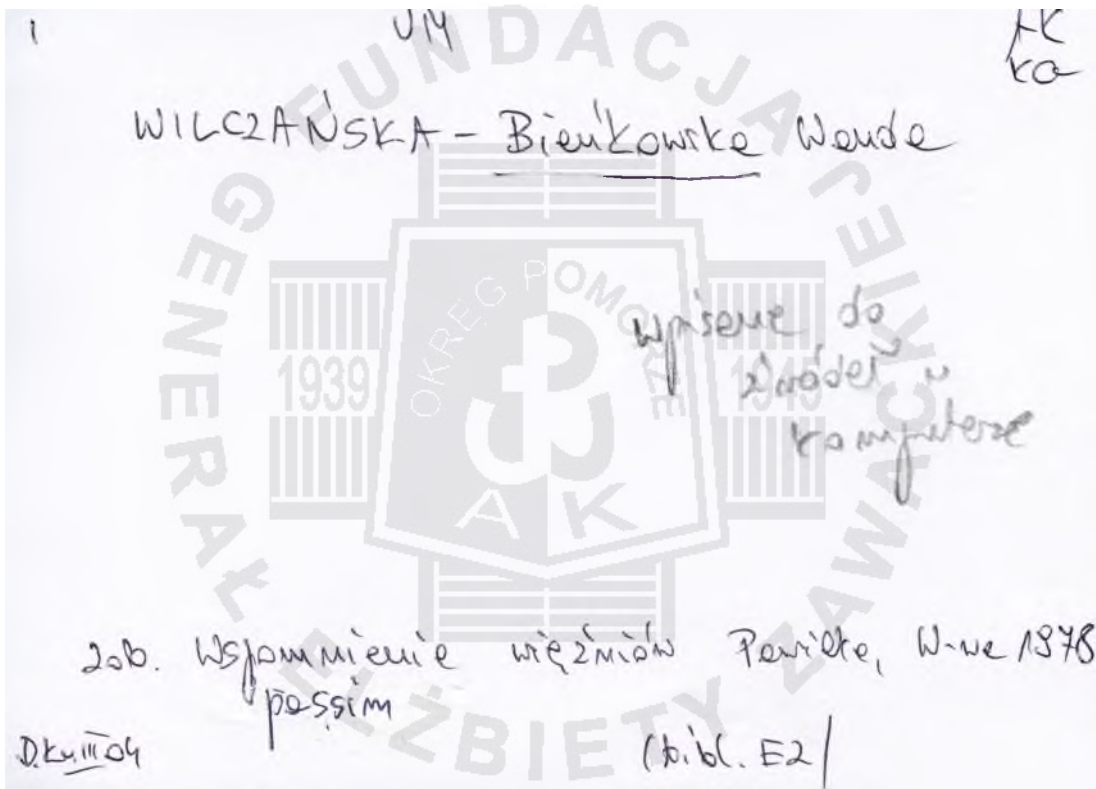 1 UM AK
ko
WILCZAŃSKA - Bieńkowska Wanda
wpisane do
źródeł w
komputerze
zob. Wspomnienie więźniów Pawiaka, W-wa 1978
passim
D.Ku.III 04 (bibl. EZ)
FUNDACJA GENERAŁ ELŻBIETY ZAWACKIEJ
OKRĘG POMORZE
1939 1945
AK